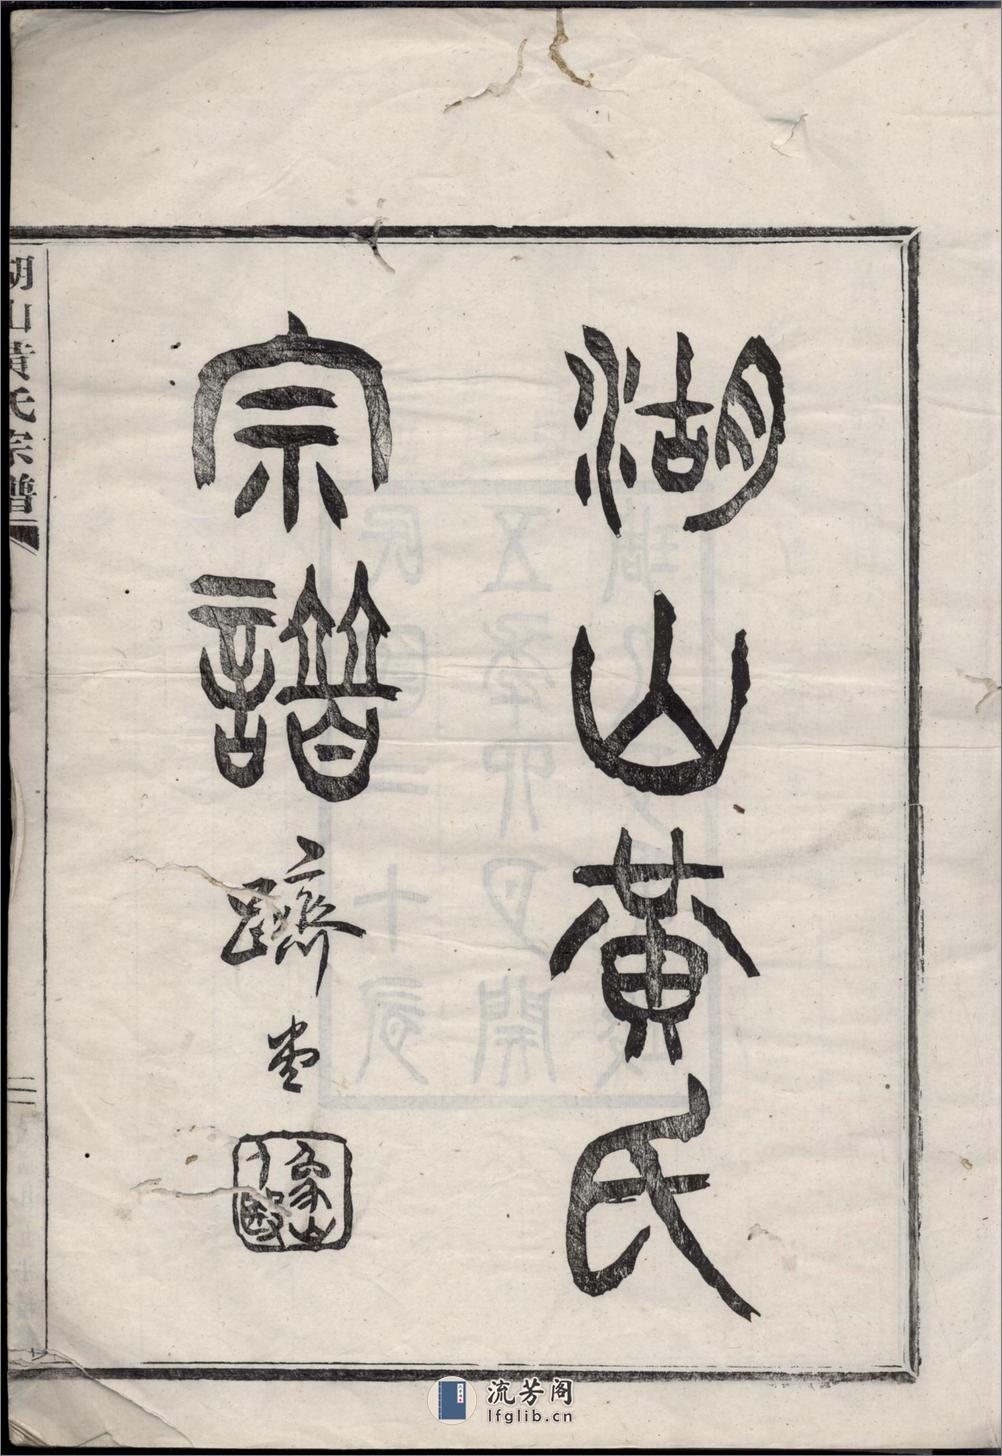 湖山黃氏
宗譜
躋堂
湖山黃氏宗譜
流芳阁
lfglib.cn